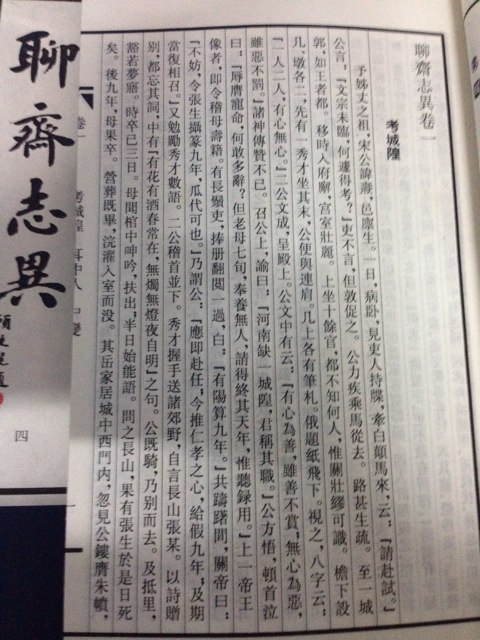 聊齋志異卷一
考城隍
予姊丈之祖,宋公諱燾,邑廩生。一日,病卧,見吏人持牒,牽白顛馬來,云:『請赴試。』
公言:『文宗未臨,何遽得考?』吏不言,但敦促之。公力疾乘馬從去。路甚生疏。至一城
郭,如王者都。移時入府廨,宮室壯麗。上坐十餘官,都不知何人,惟關壯繆可識。檐下設
几、墩各二,先有一秀才坐其末,公便與連肩。几上各有筆札。俄題紙飛下。視之,八字云:
『一人二人,有心無心。』二公文成,呈殿上。公文中有云:『有心為善,雖善不賞;無心為惡,
雖惡不罰。』諸神傳贊不已。召公上,諭曰:『河南缺一城隍,君稱其職。』公方悟,頓首泣
曰:『辱膺寵命,何敢多辭?但老母七旬,奉養無人,請得終其天年,惟聽錄用。』上一帝王
像者,即令稽母壽籍。有長鬚吏,捧册翻閱一過,白:『有陽算九年。』共躊躇間,關帝曰:
『不妨,令張生攝篆九年,瓜代可也。』乃謂公:『應即赴任;今推仁孝之心,給假九年;及期
當復相召。』又勉勵秀才數語。二公稽首並下。秀才握手送諸郊野,自言長山張某。以詩贈
別,都忘其詞,中有『有花有酒春常在,無燭無燈夜自明』之句。公既騎,乃別而去。及抵里,
豁若夢寤。時卒已三日。母聞棺中呻吟,扶出;半日始能語。問之長山,果有張生於是日死
矣。後九年,母果卒。營葬既畢,浣濯入室而没。其岳家居城中西門內,忽見公鏤膺朱幩,
卷一 考城隍 耳中人
聊齋志異
四